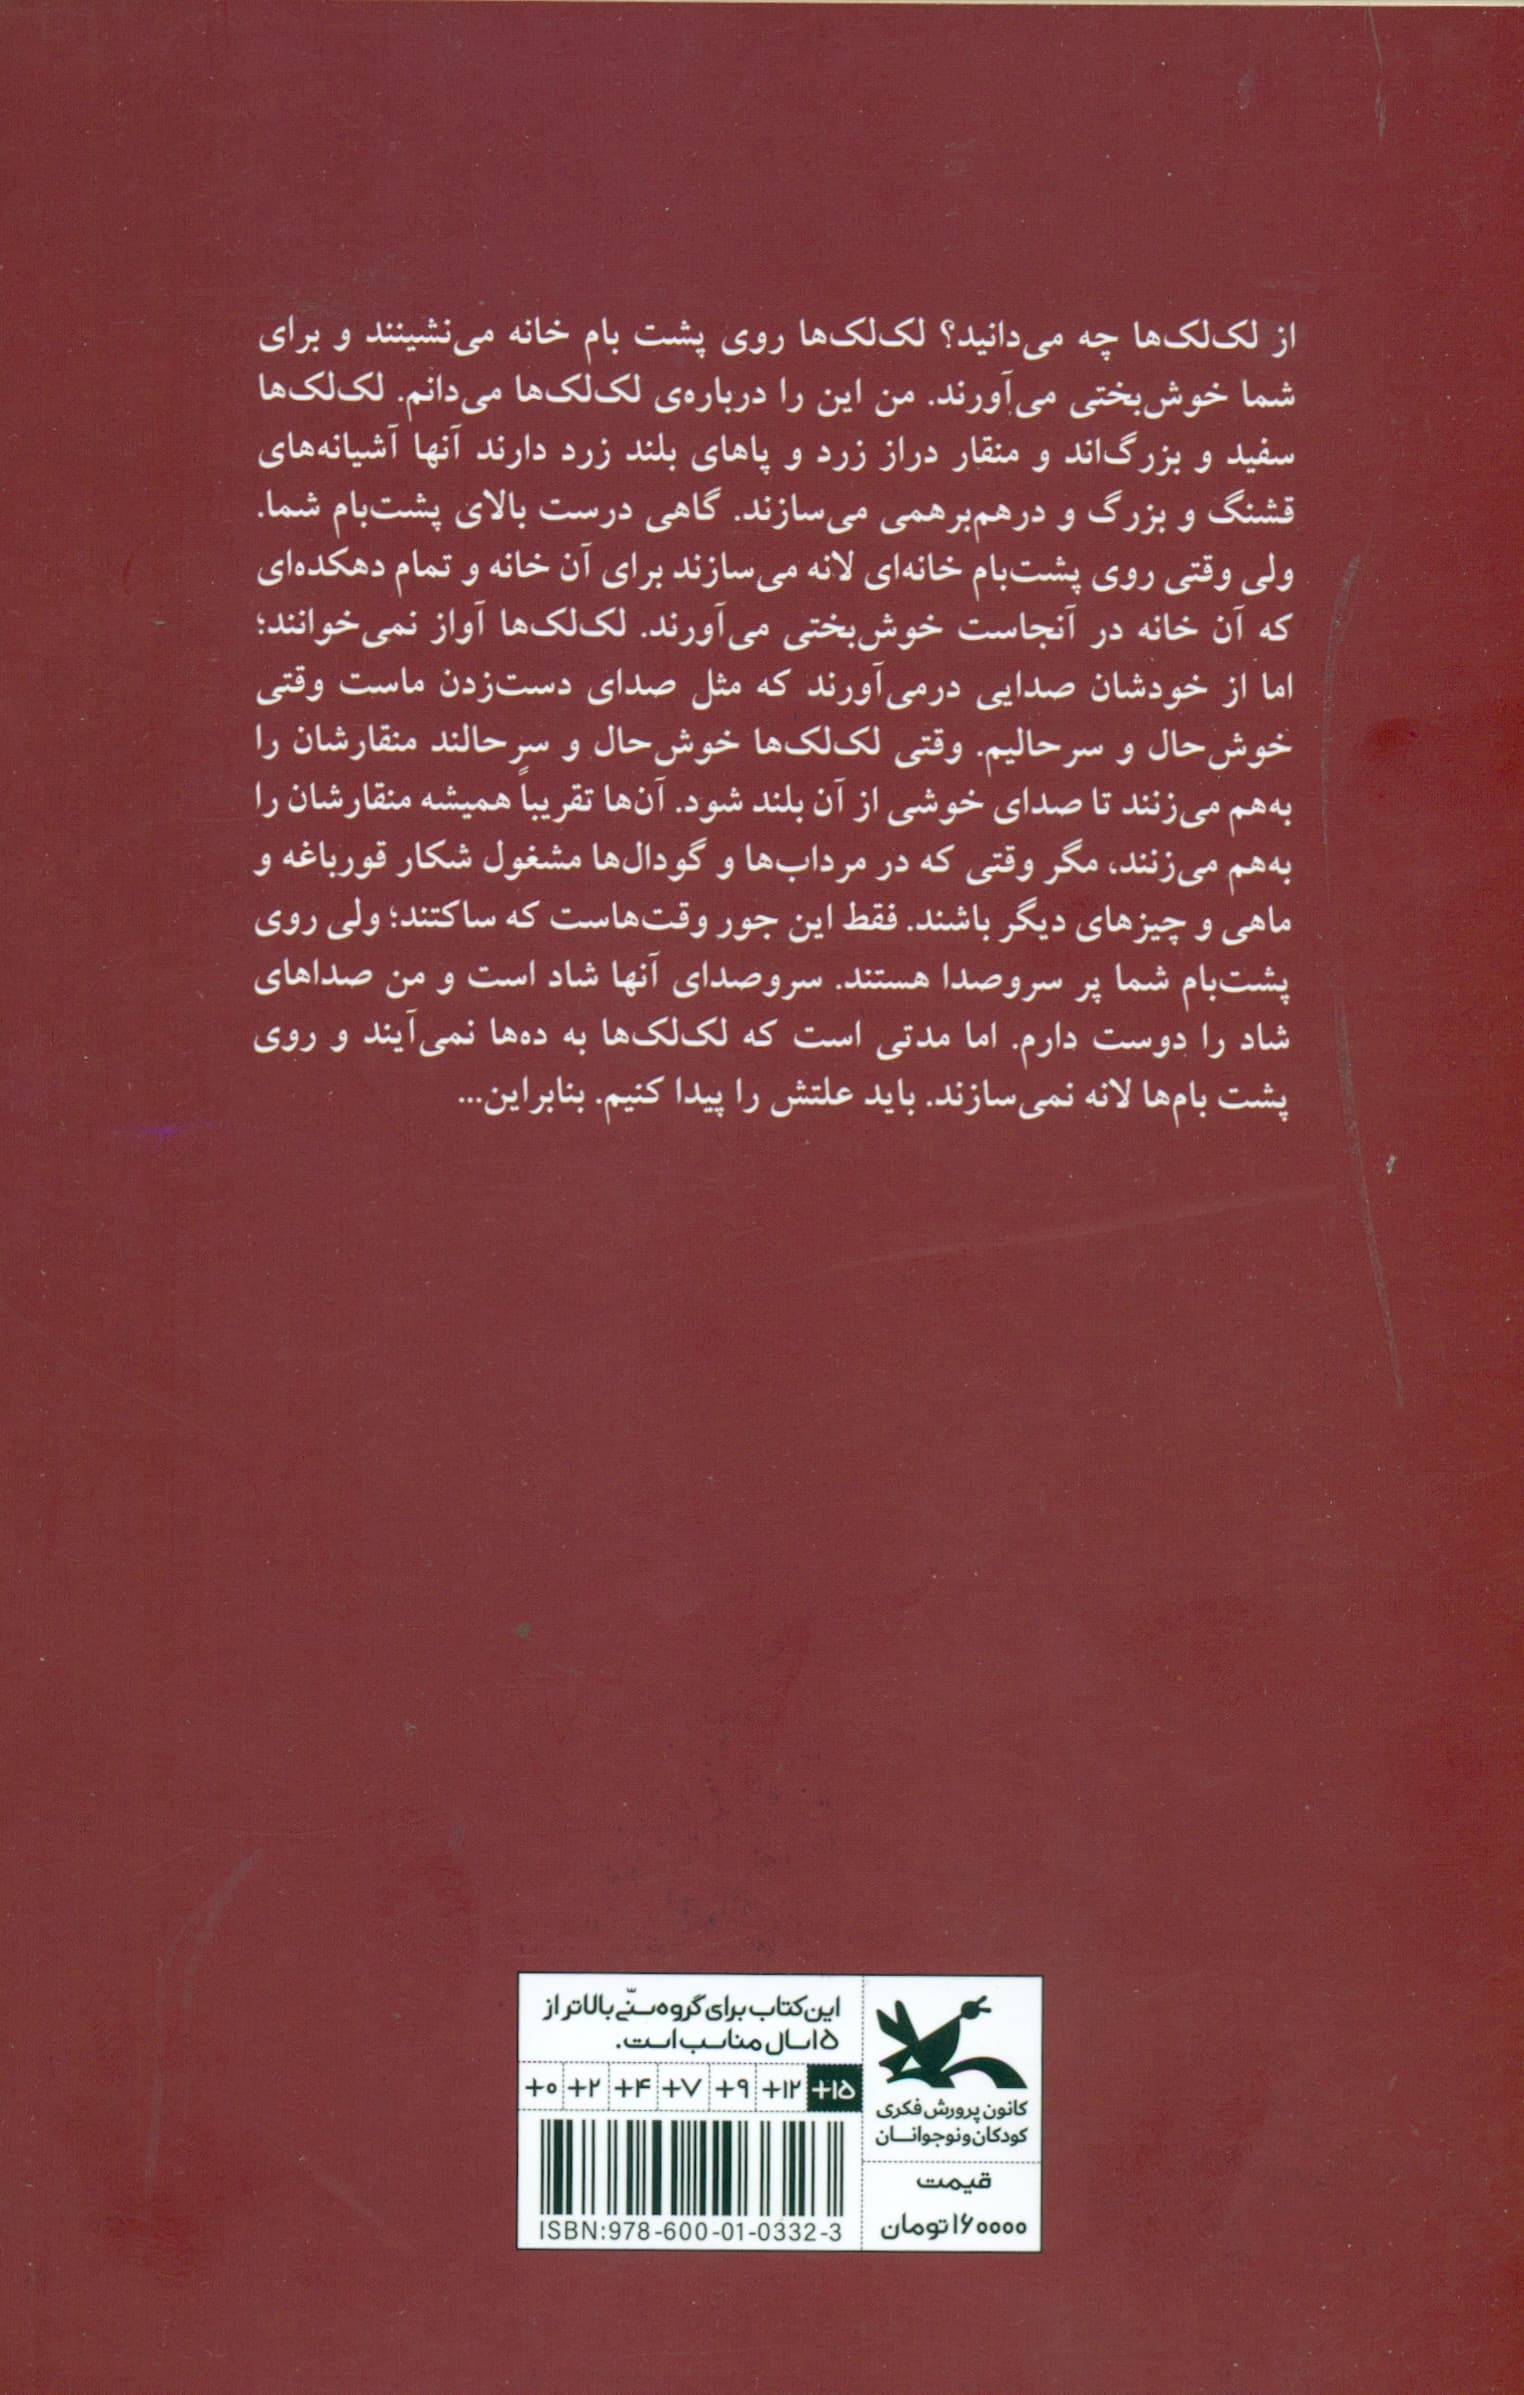 از لک‌لک‌ها چه می‌دانید؟ لک‌لک‌ها روی پشت بام خانه می‌نشینند و برای
شما خوش‌بختی می‌آورند. من این را درباره‌ی لک‌لک‌ها می‌دانم. لک‌لک‌ها
سفید و بزرگ‌اند و منقار دراز زرد و پاهای بلند زرد دارند آنها آشیانه‌های
قشنگ و بزرگ و درهم‌برهمی می‌سازند. گاهی درست بالای پشت‌بام شما.
ولی وقتی روی پشت‌بام خانه‌ای لانه می‌سازند برای آن خانه و تمام دهکده‌ای
که آن خانه در آنجاست خوش‌بختی می‌آورند. لک‌لک‌ها آواز نمی‌خوانند؛
اما از خودشان صدایی درمی‌آورند که مثل صدای دست‌زدن ماست وقتی
خوش‌حال و سرحالیم. وقتی لک‌لک‌ها خوش‌حال و سرحالند منقارشان را
به‌هم می‌زنند تا صدای خوشی از آن بلند شود. آن‌ها تقریباً همیشه منقارشان را
به‌هم می‌زنند، مگر وقتی که در مرداب‌ها و گودال‌ها مشغول شکار قورباغه و
ماهی و چیزهای دیگر باشند. فقط این جور وقت‌هاست که ساکتند؛ ولی روی
پشت‌بام شما پر سروصدا هستند. سروصدای آنها شاد است و من صداهای
شاد را دوست دارم. اما مدتی است که لک‌لک‌ها به ده‌ها نمی‌آیند و روی
پشت بام‌ها لانه نمی‌سازند. باید علتش را پیدا کنیم. بنابراین...
کانون پرورش فکری
کودکان و نوجوانان
قیمت
۱۶۰۰۰۰ تومان
این کتاب برای گروه سنّی بالاتر از
۱۵ سال مناسب است.
+۱۵ +۱۲ +۹ +۷ +۴ +۲ +۰
ISBN:978-600-01-0332-3